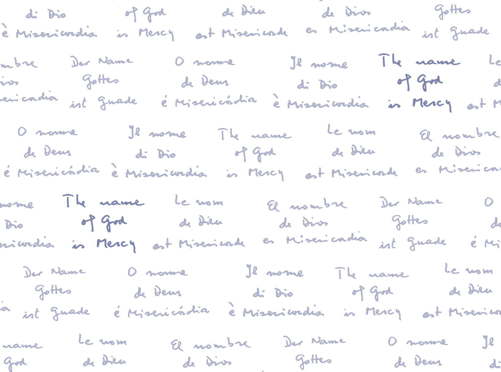 di Dio of God de Dieu de Dios Gottes
è Misericordia is Mercy est Misericorde es Misericordia ist Gnade
mbre Der Name O nome Il nome The name Le
ios Gottes de Deus di Dio of God de
ericordia ist Gnade é Misericórdia è Misericordia is Mercy est M
O nome Il nome The name Le nom El nombre
de Deus di Dio of God de Dieu de Dios
é Misericórdia è Misericordia is Mercy est Misericorde es Misericor
nome The name Le nom El nombre Der Name O
Dio of God de Dieu de Dios Gottes de
ricordia is Mercy est Misericorde es Misericordia ist Gnade é Mi
Der Name O nome Il nome The name Le nom
Gottes de Deus di Dio of God de Dieu
a ist Gnade é Misericórdia è Misericordia is Mercy est Misericor
name Le nom El nombre Der Name O nome Il
God de Dieu de Dios Gottes de Deus di